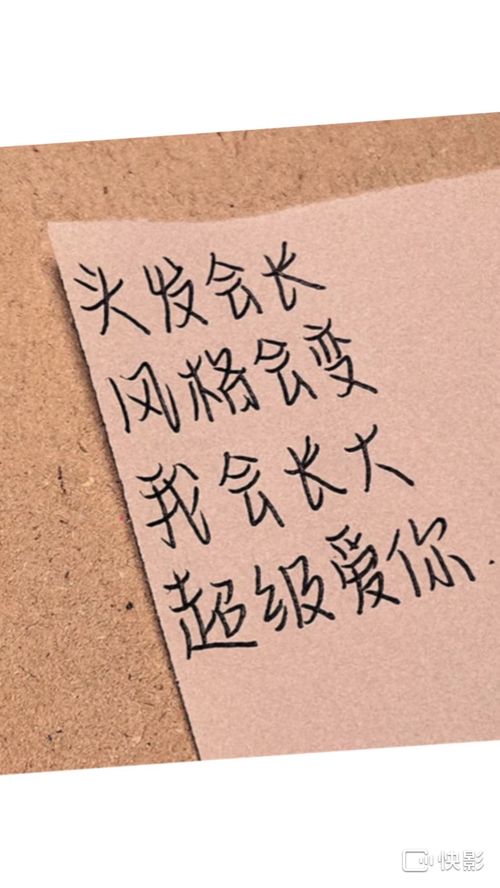 头发会长
风格会变
我会长大
超级爱你.
快影